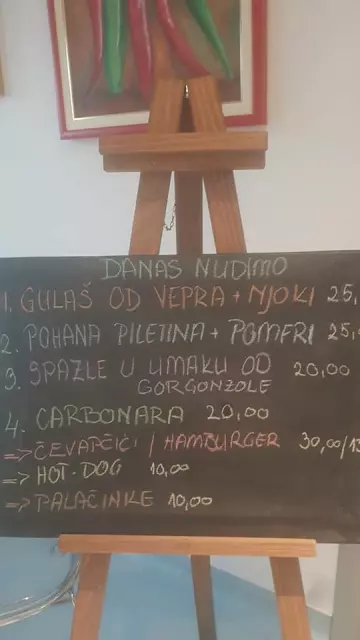 DANAS NUDIMO
1. GULAŠ OD VEPRA + NJOKI 25,
2. POHANA PILETINA + POMFRI 25,
3. ŠPAZLE U UMAKU OD 20,00
GORGONZOLE
4. CARBONARA 20,00
=> ČEVAPČIĆI / HAMBURGER 30,00/15
=> HOT-DOG 10,00
=> PALAČINKE 10,00